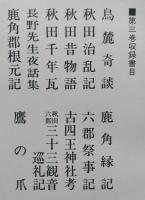 ■第三巻収録書目
鳥麓奇談
鹿角縁記
秋田治乱記
六郡祭事記
秋田昔物語
古四王神社考
秋田千年瓦
秋田六郡三十三観音巡礼記
長野先生夜話集
鹿角郡根元記
鷹の爪